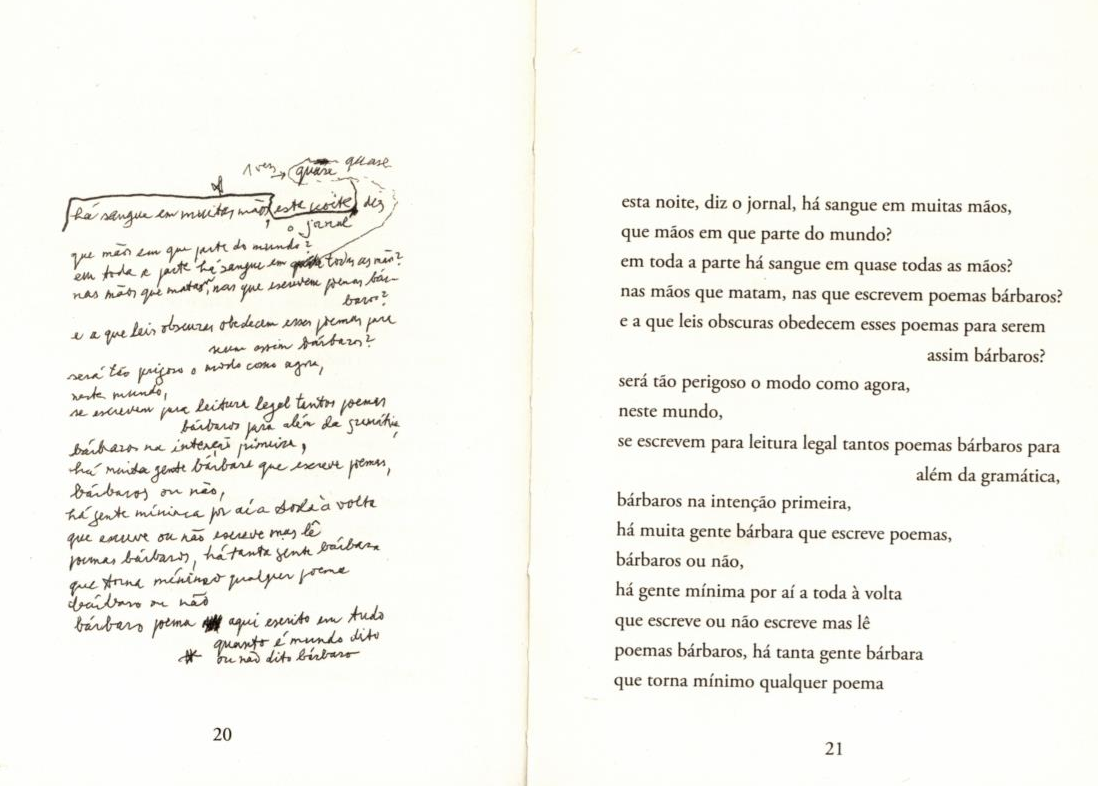 1 vez → quase quase
há sangue em muitas mãos, esta noite diz
o jornal
que mãos em que parte do mundo?
em toda a parte há sangue em todas as mãos?
nas mãos que matam, nas que escrevem poemas bár-
baros?
e a que leis obscuras obedecem esses poemas para
serem assim bárbaros?
será tão perigoso o modo como agora,
neste mundo,
se escrevem para leitura legal tantos poemas
bárbaros para além da gramática,
bárbaros na intenção primeira,
há muita gente bárbara que escreve poemas,
bárbaros ou não,
há gente mínima por aí a toda à volta
que escreve ou não escreve mas lê
poemas bárbaros, há tanta gente bárbara
que torna mínimo qualquer poema
bárbaro ou não
bárbaro poema aqui escrito em tudo
quanto é mundo dito
* ou não dito bárbaro
20
esta noite, diz o jornal, há sangue em muitas mãos,
que mãos em que parte do mundo?
em toda a parte há sangue em quase todas as mãos?
nas mãos que matam, nas que escrevem poemas bárbaros?
e a que leis obscuras obedecem esses poemas para serem
assim bárbaros?
será tão perigoso o modo como agora,
neste mundo,
se escrevem para leitura legal tantos poemas bárbaros para
além da gramática,
bárbaros na intenção primeira,
há muita gente bárbara que escreve poemas,
bárbaros ou não,
há gente mínima por aí a toda à volta
que escreve ou não escreve mas lê
poemas bárbaros, há tanta gente bárbara
que torna mínimo qualquer poema
21